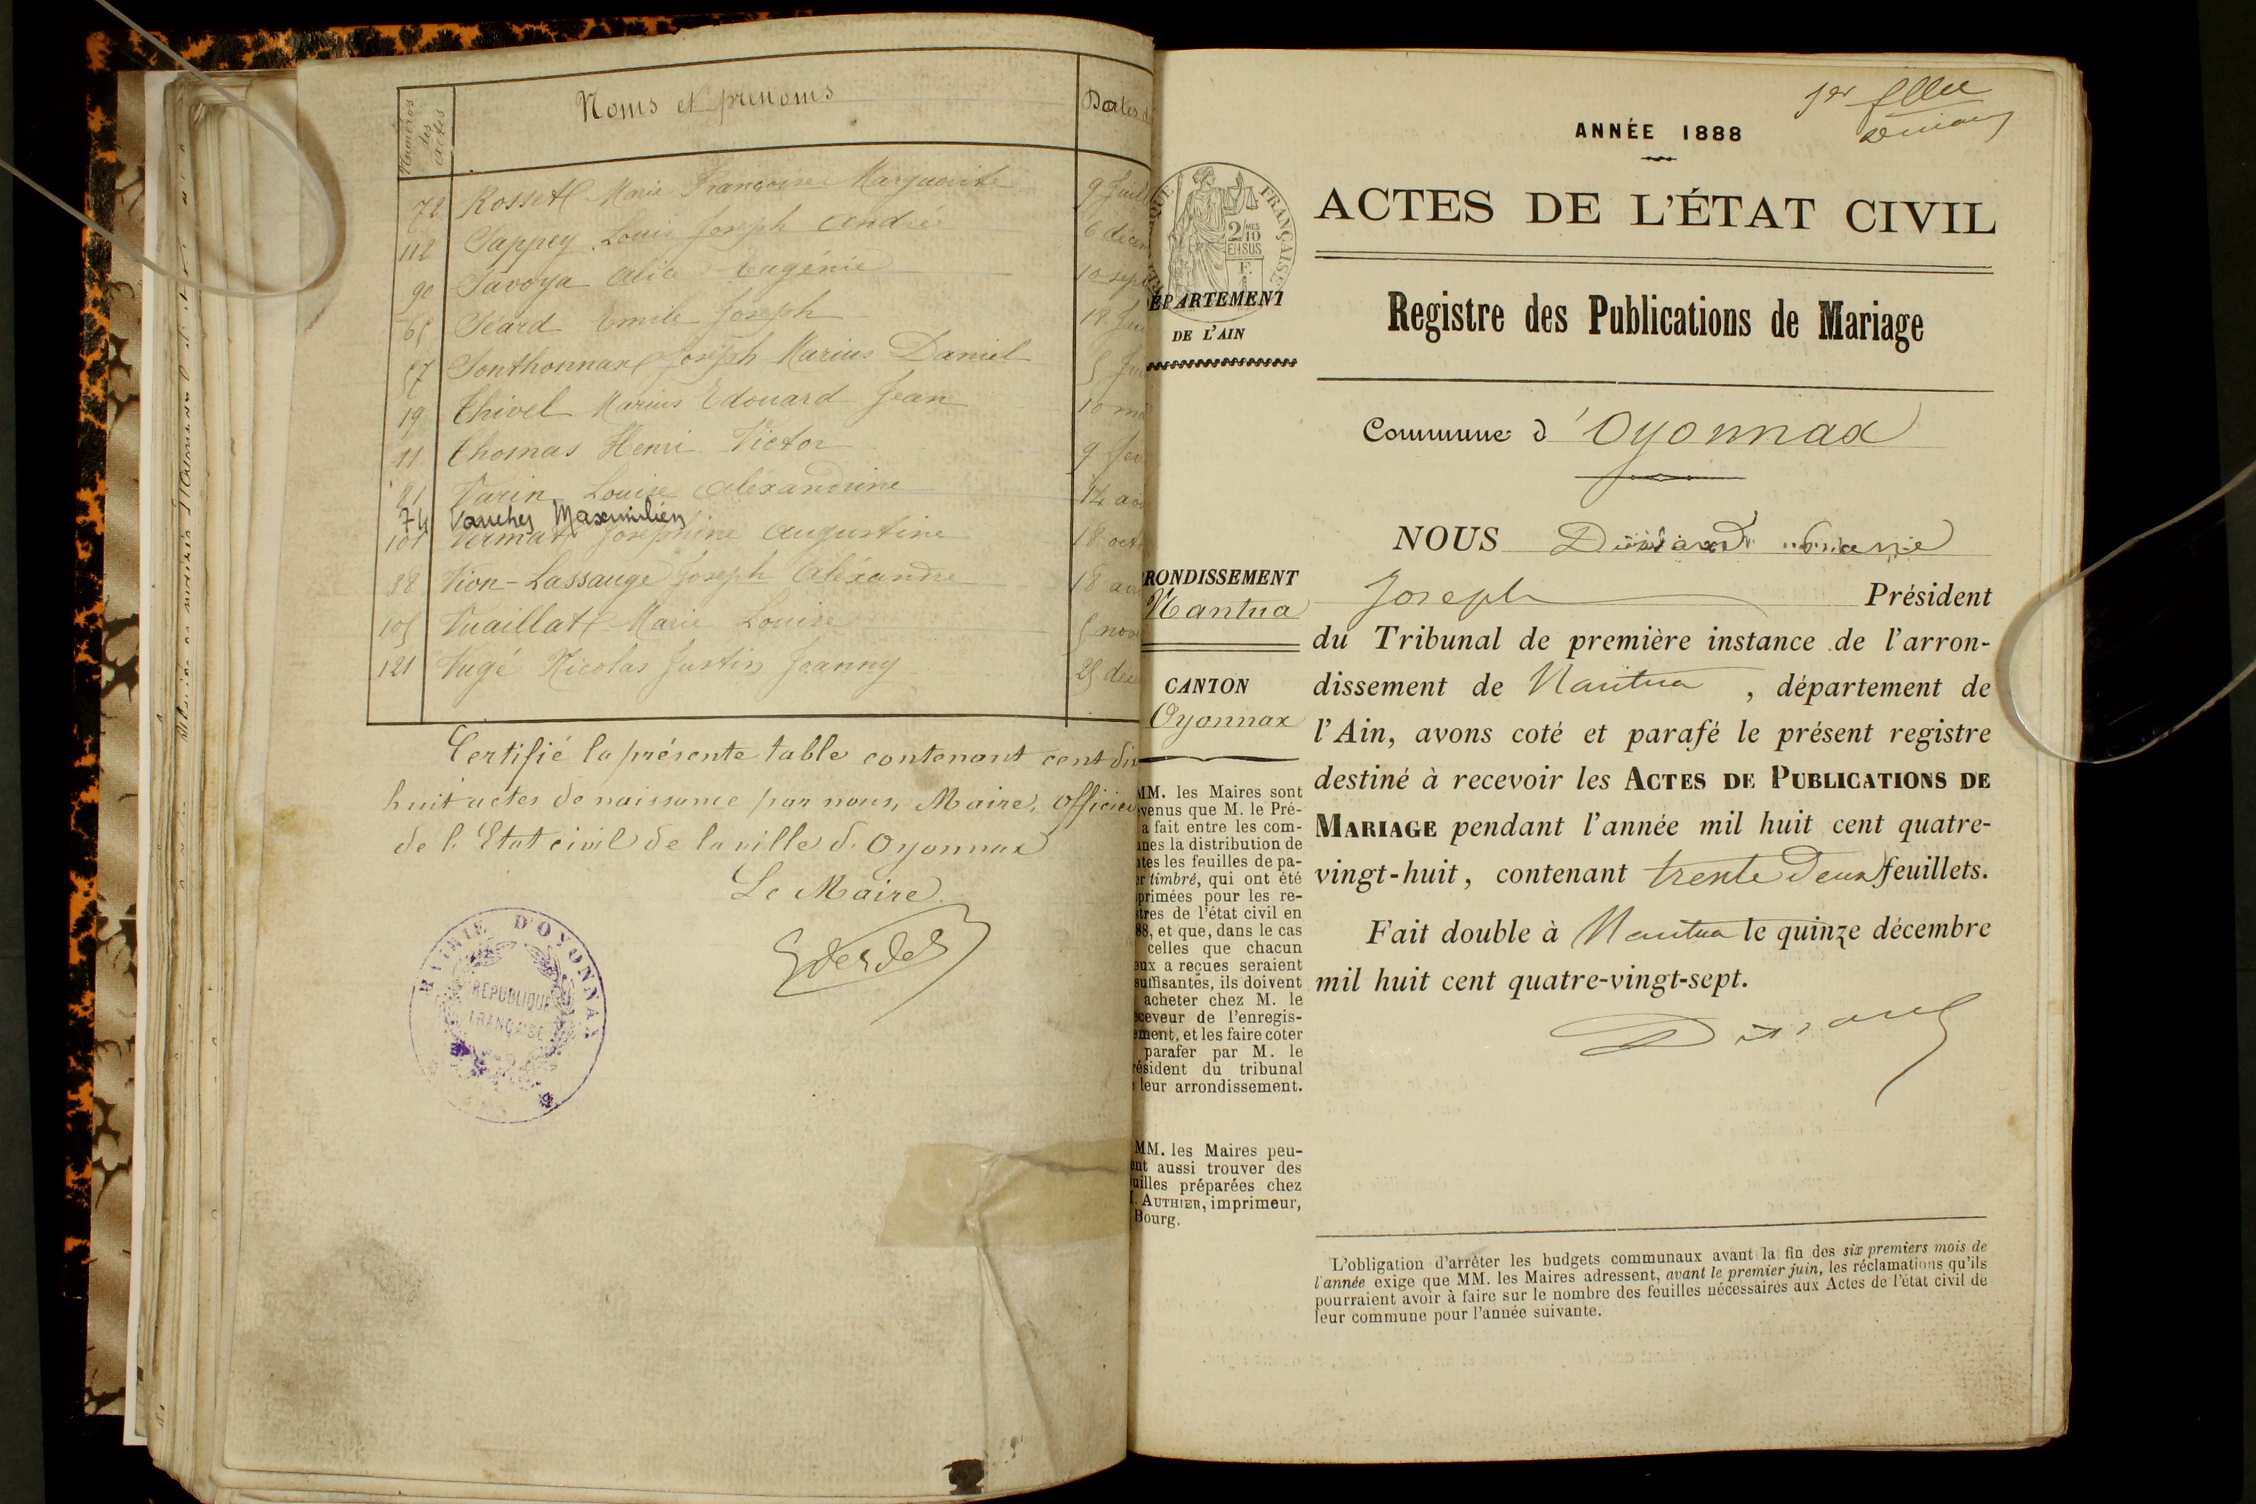 Numéros des actes
Noms et prénoms
Dates d
72 Rosset Marie Françoise Marguerite 9 Juil
112 Sappey Louis Joseph André 6 décem
90 Savoya Alice Eugénie 10 sept
65 Séard Emile Joseph 18 Jui
57 Sonthonnax Joseph Marius Daniel 5 Jui
19 Thivel Marius Edouard Jean 10 ma
11 Thomas Henri Victor 9 fev
81 Varin Louise Alexandrine 14 aoû
74 Vauchey Maximilien
101 Vermat Joséphine Augustine 18 oct
88 Vion-Lassauge Joseph Aléxandre 18 aoû
105 Vuaillat Marie Louise 5 nov
121 Vugé Nicolas Justin Joanny 25 déc
Certifié la présente table contenant cent dix
huit actes de naissance par nous, Maire, officier
de l'Etat civil de la ville d'Oyonnax
Le Maire
MAIRIE D'OYONNAX
RÉPUBLIQUE
FRANÇAISE
1er
ANNÉE 1888
ACTES DE L'ÉTAT CIVIL
Registre des Publications de Mariage
Commune d'Oyonnax
FRANÇAISE
2 MES
10
EN SUS
ÉPARTEMENT
DE L'AIN
RONDISSEMENT
Nantua
CANTON
Oyonnax
MM. les Maires sont
venus que M. le Pré-
a fait entre les com-
nes la distribution de
tes les feuilles de pa-
er timbré, qui ont été
primées pour les re-
stres de l'état civil en
88, et que, dans le cas
celles que chacun
eux a reçues seraient
suffisantes, ils doivent
acheter chez M. le
ceveur de l'enregis-
ement, et les faire coter
parafer par M. le
résident du tribunal
leur arrondissement.
MM. les Maires peu-
ent aussi trouver des
uilles préparées chez
M. AUTHIER, imprimeur,
Bourg.
NOUS Marie
Joseph Président
du Tribunal de première instance de l'arron-
dissement de Nantua, département de
l'Ain, avons coté et parafé le présent registre
destiné à recevoir les ACTES DE PUBLICATIONS DE
MARIAGE pendant l'année mil huit cent quatre-
vingt-huit, contenant trente deux feuillets.
Fait double à Nantua le quinze décembre
mil huit cent quatre-vingt-sept.
L'obligation d'arrêter les budgets communaux avant la fin des six premiers mois de
l'année exige que MM. les Maires adressent, avant le premier juin, les réclamations qu'ils
pourraient avoir à faire sur le nombre des feuilles nécessaires aux Actes de l'état civil de
leur commune pour l'année suivante.